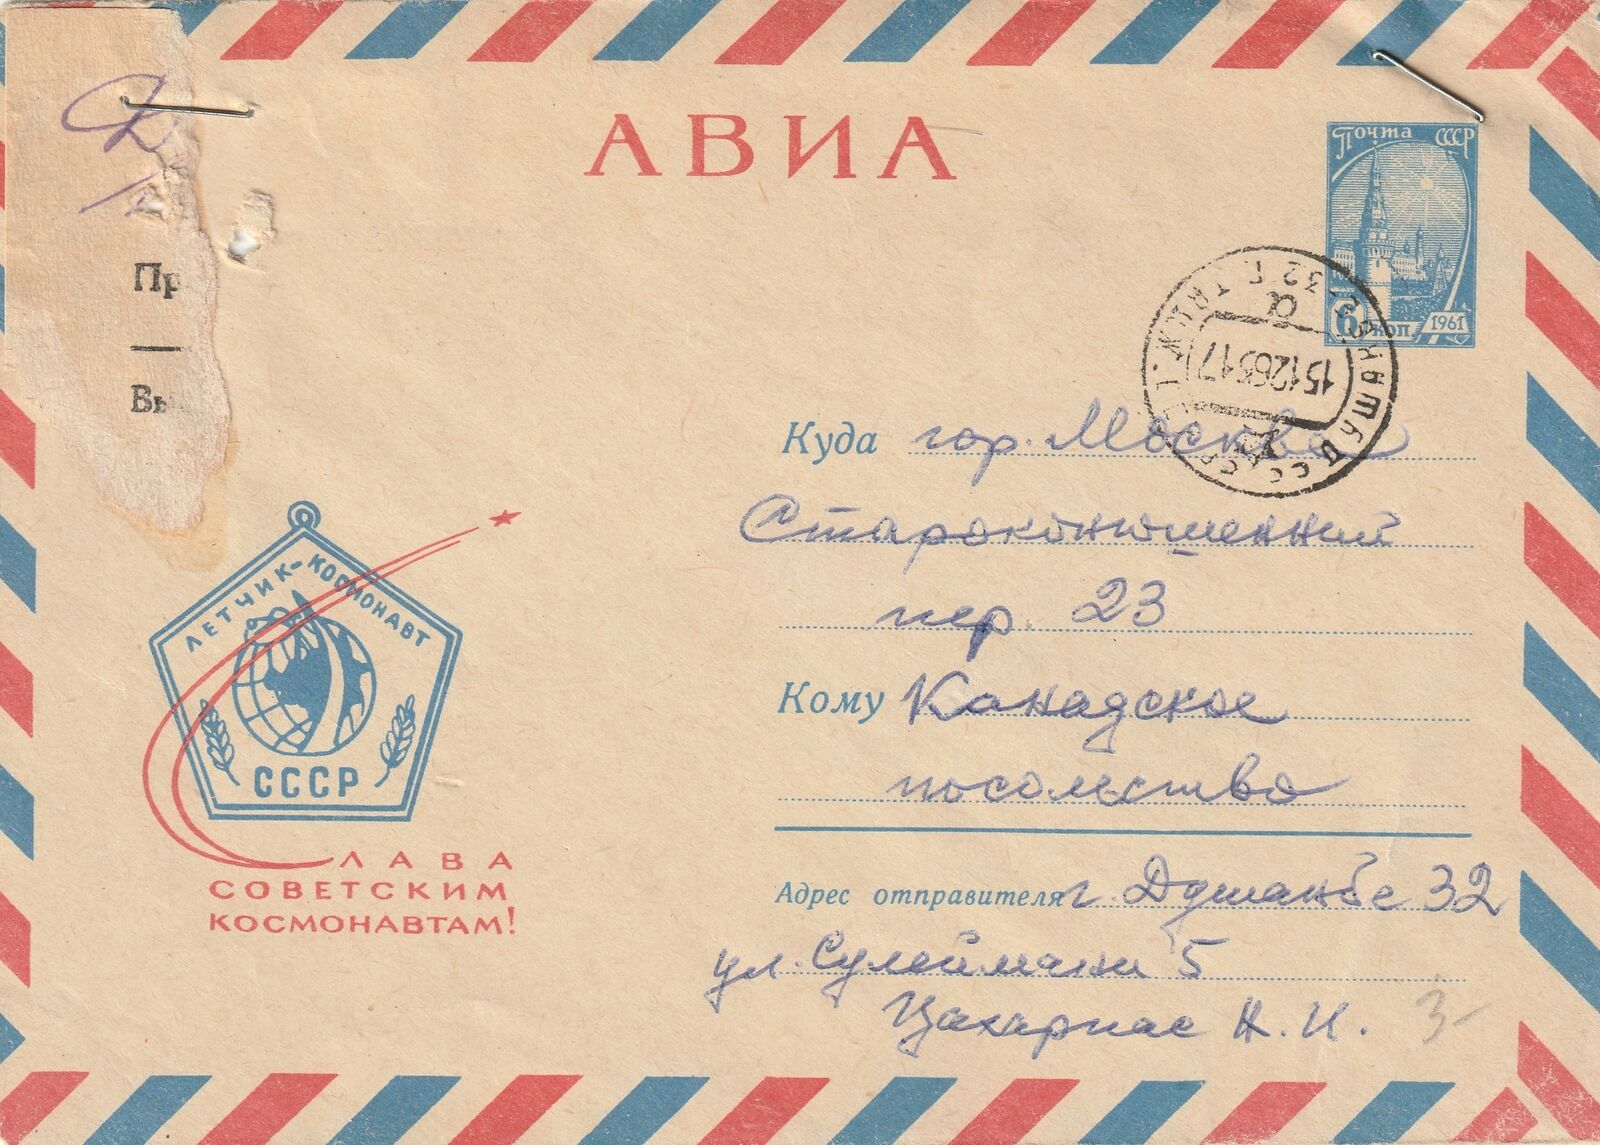 АВИА
Почта СССР
6 коп 1961
Пр
Вы
15126517
Куда гор. Москва
Староконюшенный
пер. 23
Кому Канадское
посольство
ЛЕТЧИК-КОСМОНАВТ
СССР
СЛАВА
СОВЕТСКИМ
КОСМОНАВТАМ!
Адрес отправителя г. Душанбе 32
ул. Сулеймани 5
Цахариас Н. И.
3-